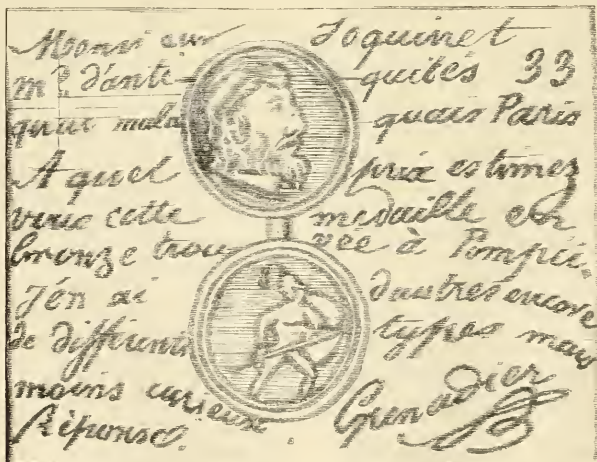 Monsieur Joquinet
md d'antiquités 33
quai mala quais Paris
A quel prix estimez
vous cette médaille en
bronze trouvée à Pompéi.
J'en ai d'autres encore
de différents types mais
moins curieux. Grenadier
Réponse.